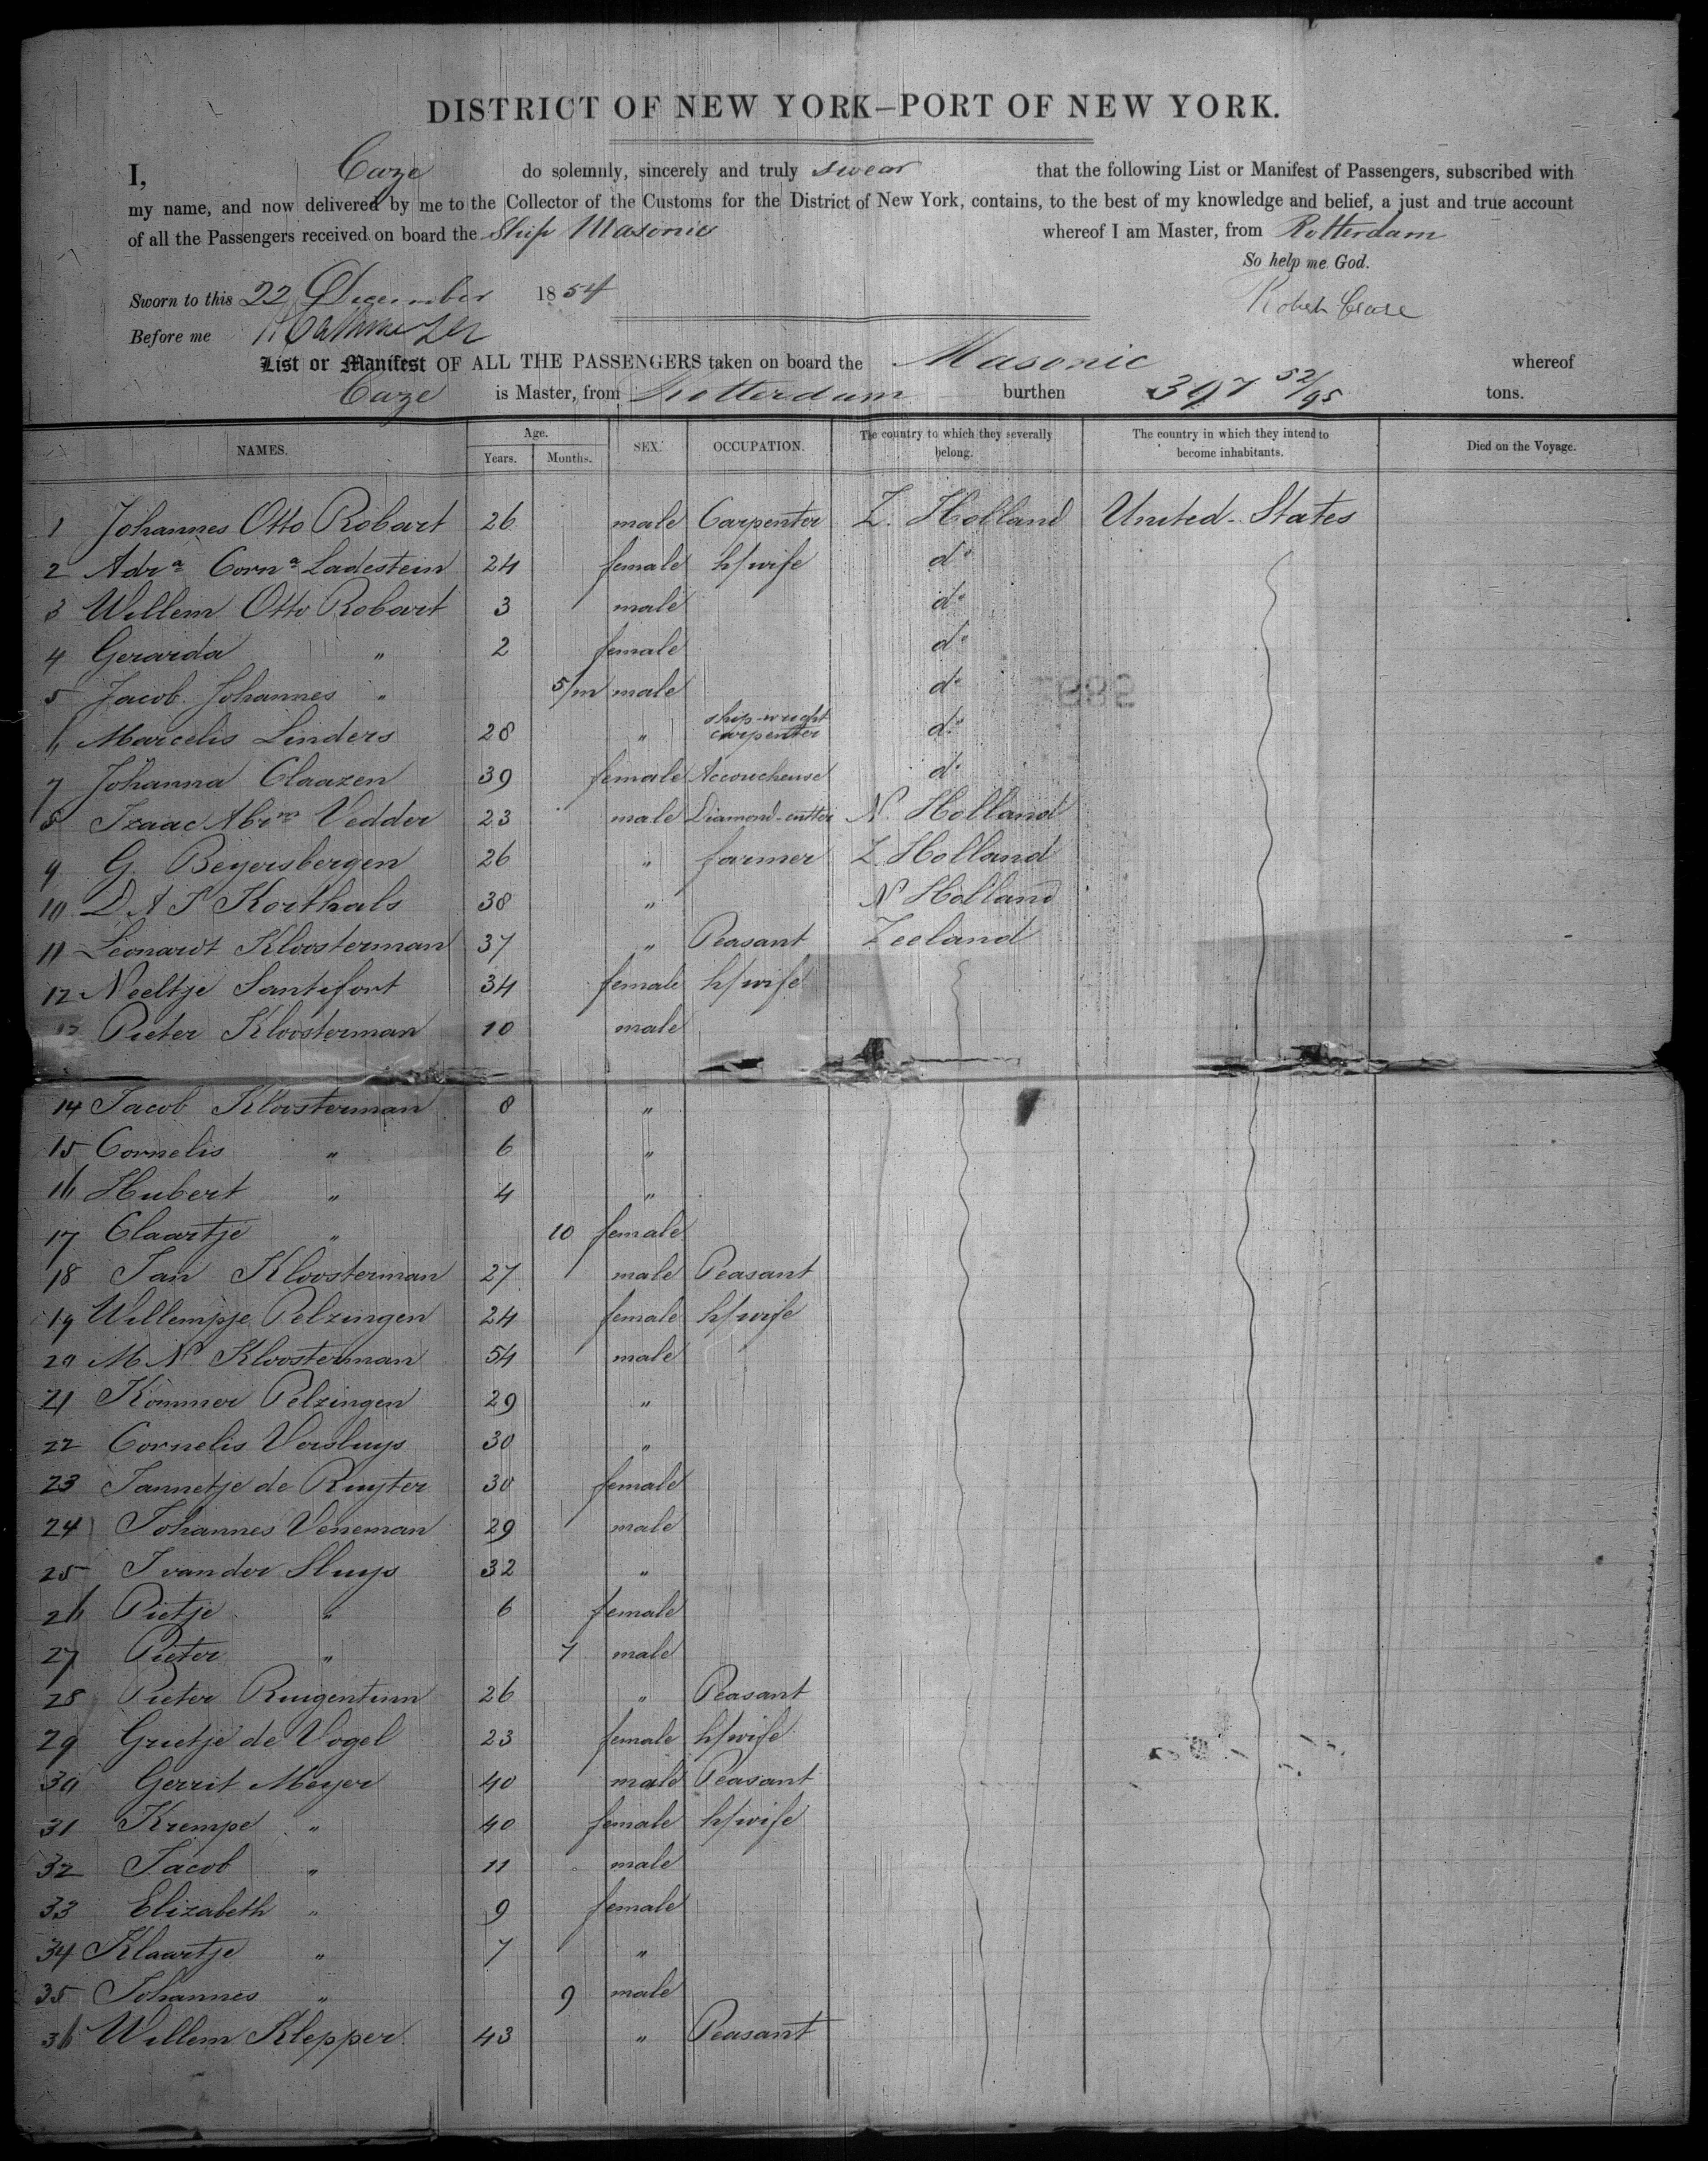 DISTRICT OF NEW YORK–PORT OF NEW YORK.
I, Caze do solemnly, sincerely and truly swear that the following List or Manifest of Passengers, subscribed with
my name, and now delivered by me to the Collector of the Customs for the District of New York, contains, to the best of my knowledge and belief, a just and true account
of all the Passengers received on board the Ship Masonic whereof I am Master, from Rotterdam
So help me God.
Sworn to this 22 December 1854
Robert
Before me
List or Manifest OF ALL THE PASSENGERS taken on board the Masonic whereof
Caze is Master, from Rotterdam burthen 397 52/95 tons.
NAMES. Age. Years. Months. SEX. OCCUPATION. The country to which they severally belong. The country in which they intend to become inhabitants. Died on the Voyage.
1 Johannes Otto Robart 26 male Carpenter Z. Holland United-States
2 Adrª Cornª Ladestein 24 female h/wife dº
3 Willem Otto Robart 3 male dº
4 Gerarda " 2 female dº
5 Jacob Johannes " 5/m male dº
6 Marcelis Linders 28 " ship-wright carpenter dº
7 Johanna Claazen 39 female Accoucheuse dº
8 Izaac Abrm Vedder 23 male Diamond-cutter N. Holland
9 G. Beyersbergen 26 " farmer Z. Holland
10 D A P Korthals 38 " N Holland
11 Leonardt Kloosterman 37 " Peasant Zeeland
12 Neeltje Santifort 34 female h/wife
13 Pieter Kloosterman 10 male
14 Jacob Kloosterman 8 "
15 Cornelis " 6 "
16 Hubert " 4 "
17 Claartje " 10 female
18 Jan Kloosterman 27 male Peasant
19 Willempje Pelzingen 24 female h/wife
20 M N Kloosterman 54 male
21 Kommer Pelzingen 29 "
22 Cornelis Versluys 30 "
23 Jannetje de Ruyter 30 female
24 Johannes Veneman 29 male
25 J van der Sluys 32 "
26 Pietje " 6 female
27 Pieter " 7 male
28 Pieter 26 " Peasant
29 Grietje de Vogel 23 female h/wife
30 Gerrit Meyer 40 male Peasant
31 Krempe " 40 female h/wife
32 Jacob " 11 male
33 Elizabeth " 9 female
34 Klaartje " 7 "
35 Johannes " 9 male
36 Willem Klepper 43 " Peasant